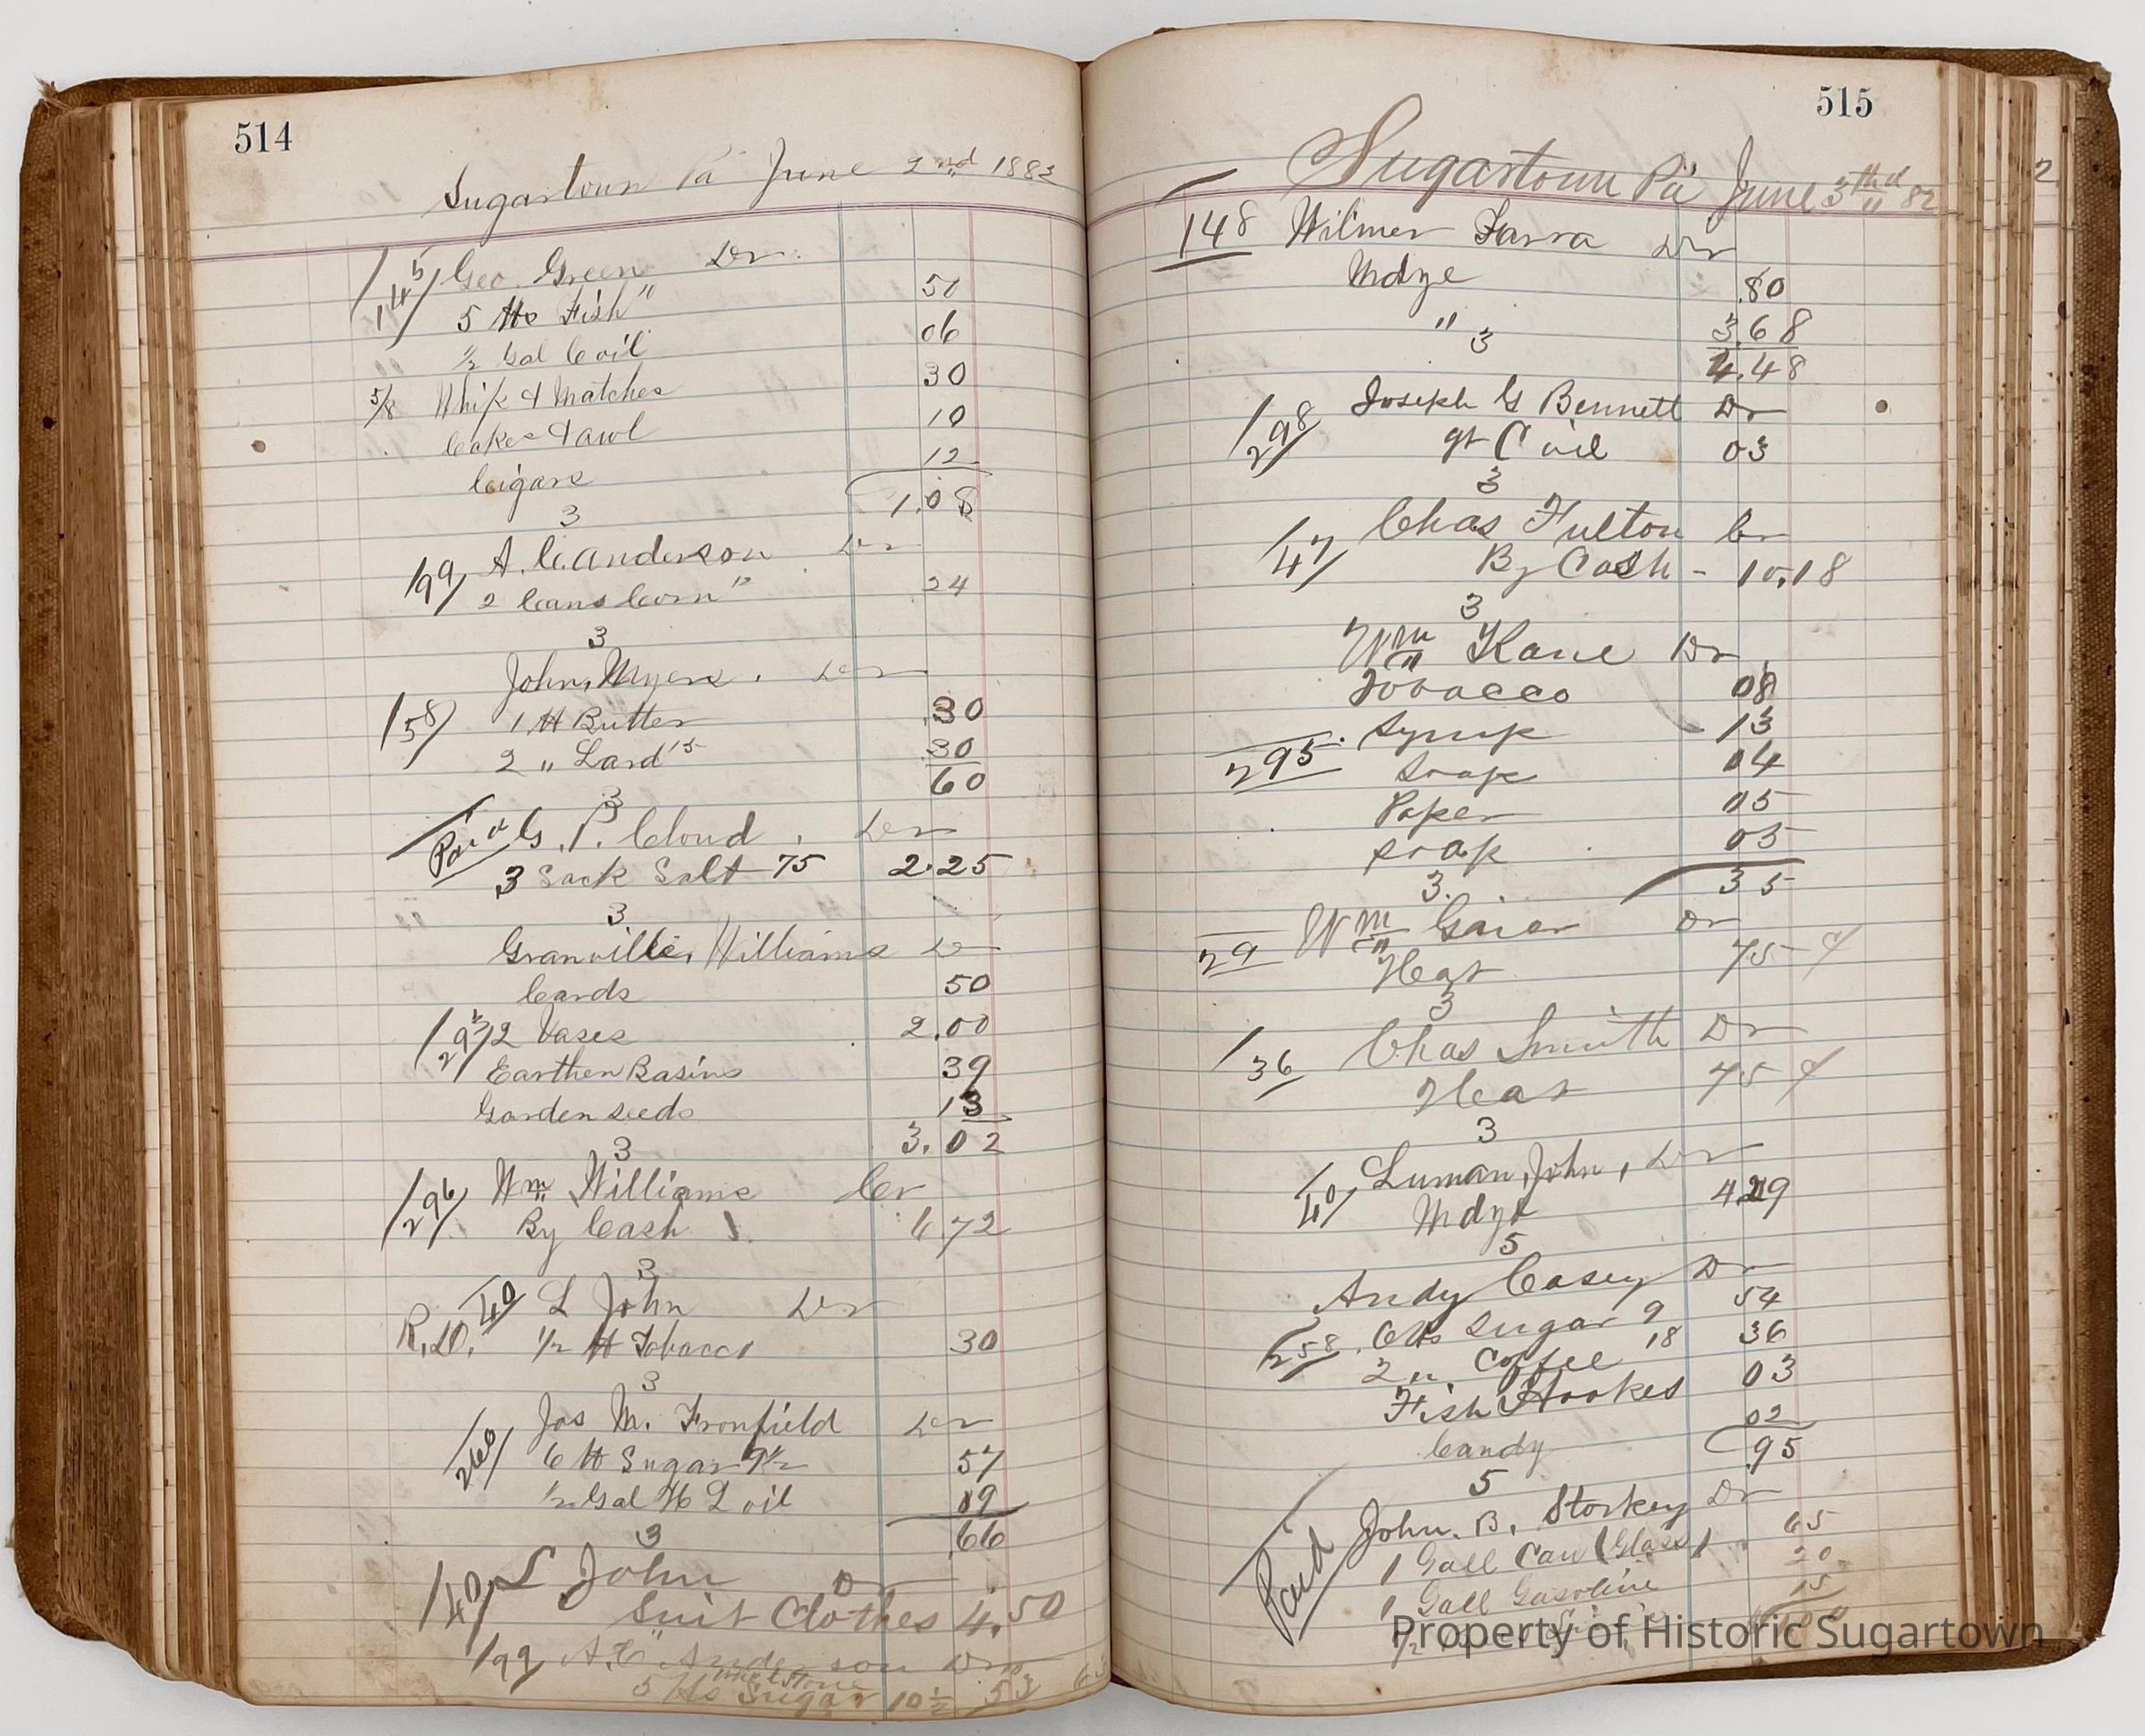 514
Sugartown Pa June 2nd 1883
145 Geo. Green Dr.
5 lbs Fish " 50
1/2 Gal C oil 06
5/8 Whip & Matches 30
Cakes & awl 10
Cigars 12
1.08
3
199 A. C. Anderson Dr
2 Cans Corn 12 24
3
John Myers. Dr
158 1 lb Butter 30
2 " Lard 15 30
60
3
Paid G. P. Cloud, Dr
3 Sack Salt 75 2.25
3
Granville Williams Dr
Cards 50
2 Vases 2.00
Earthen Basins 39
Garden seeds 13
3.02
3
296 Wm Williams Cr
By Cash 6.72
3
40 L John Dr
R.D. 1/2 lb Tobacco 30
3
260 Jas M. Fronfield Dr
6 lb Sugar 9 1/2 57
1/2 Gal H L oil 09
66
3
40 L John Dr
Suit Clothes 4.50
199 A. C. Anderson Dr
5 lbs Sugar 10 1/2 53
515
Sugartown Pa June 82
148 Wilmer Farra Dr
Mdze .80
" 3.68
3 4.48
298 Joseph G Bennett Dr
qt C oil 03
3
47 Chas Fulton Cr
By Cash - 10.18
3
Wm Kane Dr
Tobacco 08
Syrup 13
295 Soap 04
Paper 05
soap 05
3. 35
29 Wm Gaier Dr
Heat 75
3
36 Chas Smith Dr
Heat 75
3
40 Luman John, Dr
Mdze
5
Andy Casey Dr
258 6 lbs Sugar 9 54
2 " Coffee 18 36
Fish Hookes 03
Candy 02
95
5
John. B. Storkey Dr
Paid 1 Gall Can (Glass) 65
1 Gall Gasoline 20
1/2 15
Property of Historic Sugartown